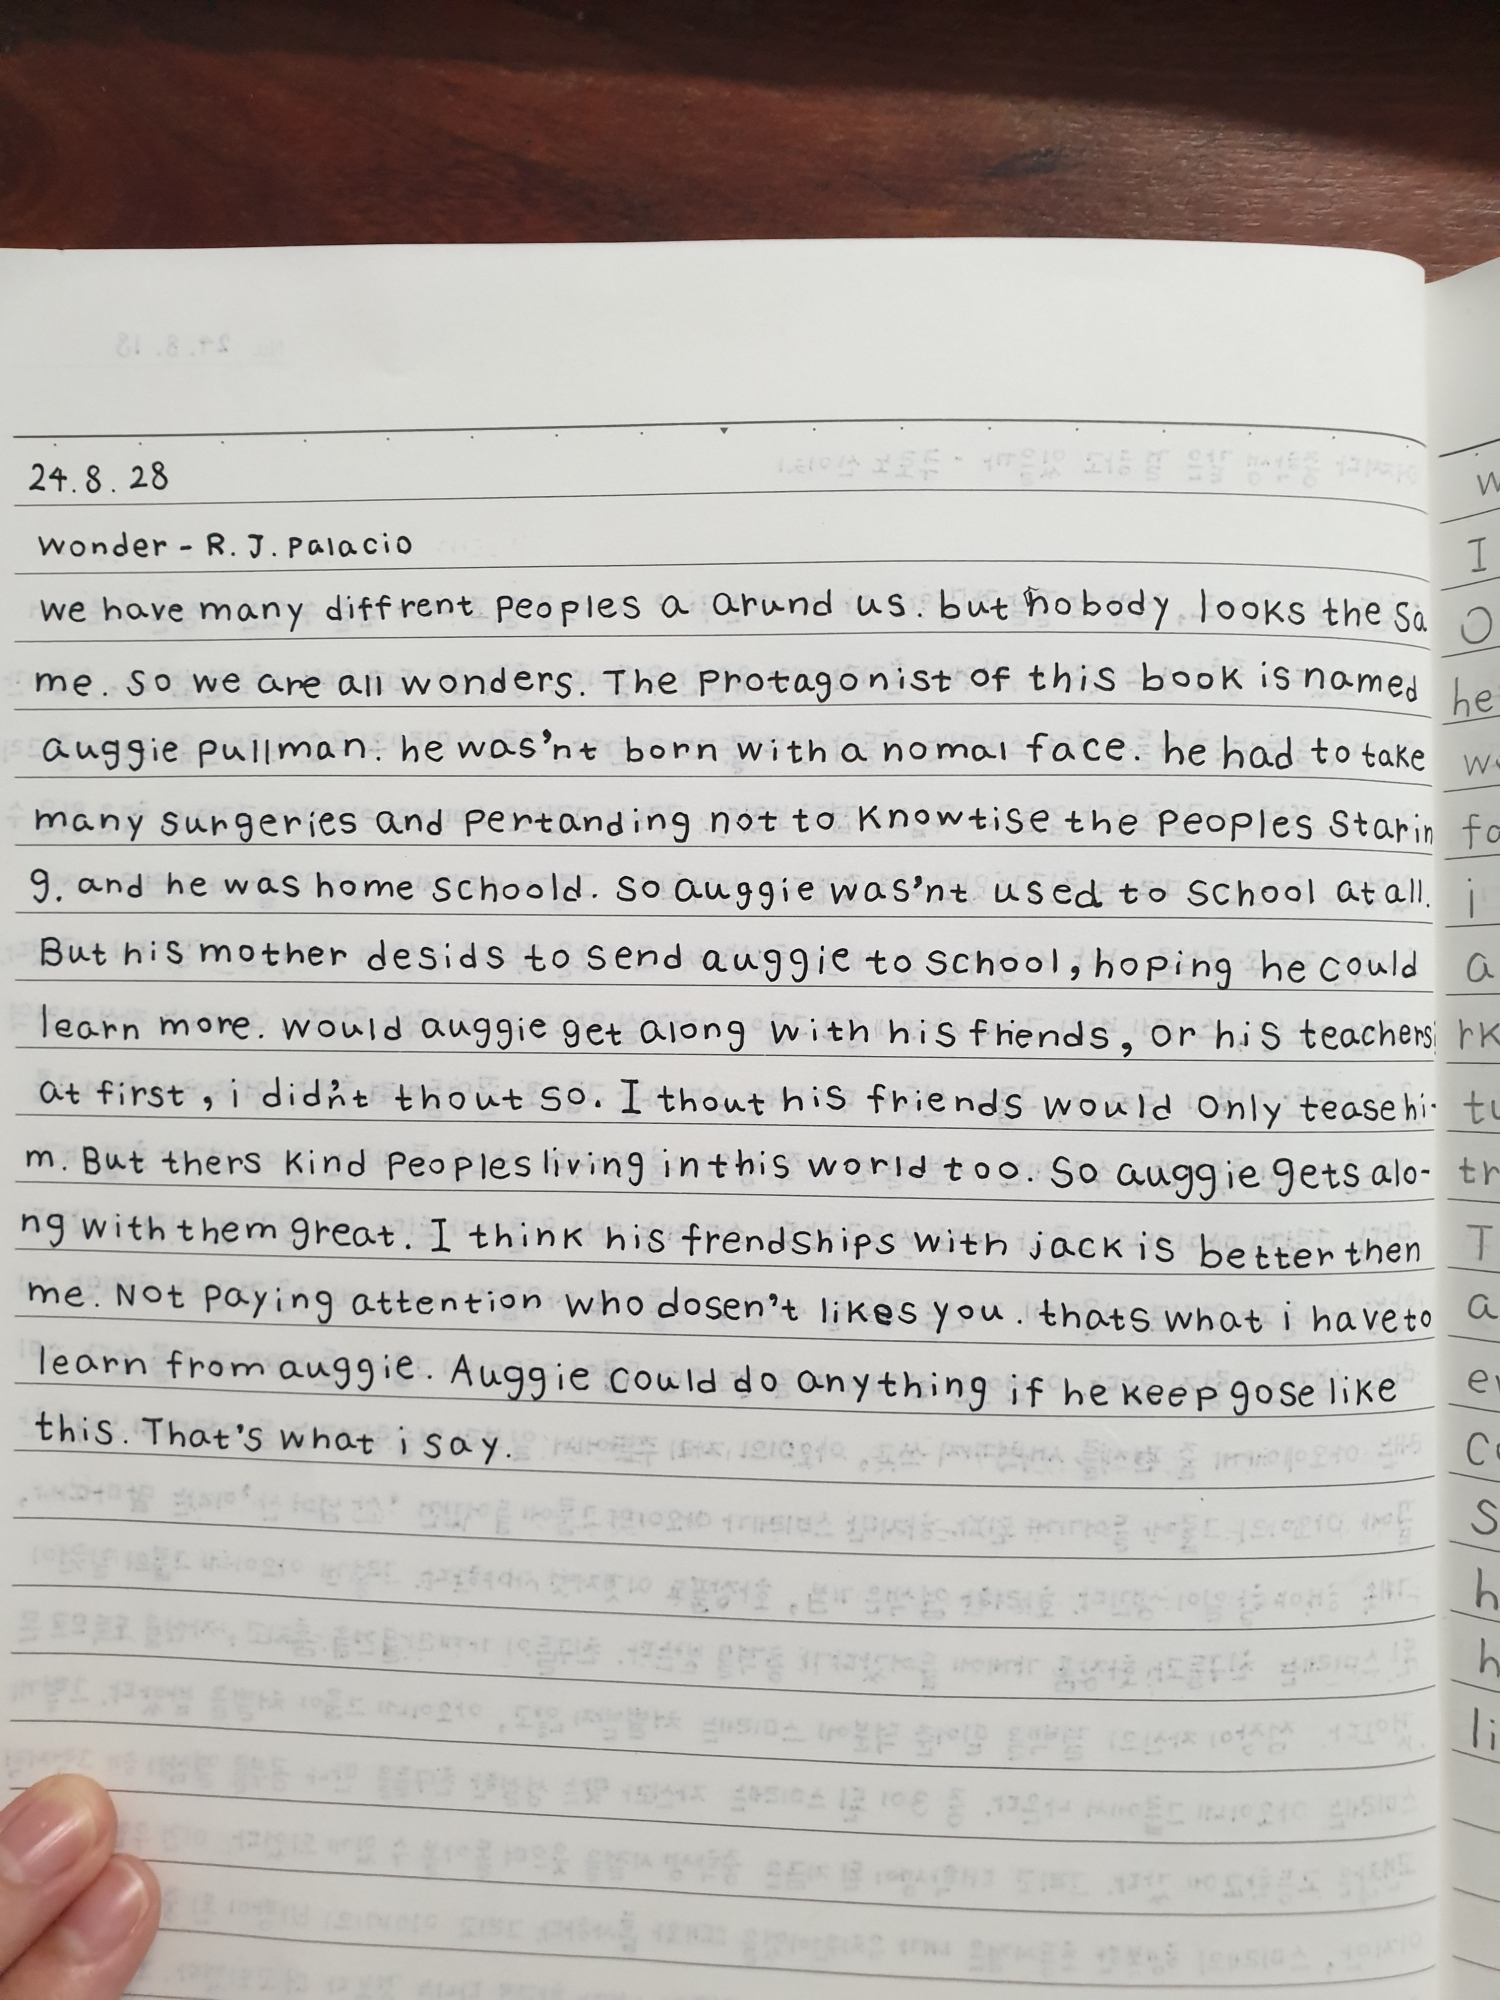 24.8.28
wonder - R.J. Palacio
we have many diffrent peoples a arund us. but nobody looks the sa
me. so we are all wonders. The protagonist of this book is named
auggie pullman. he was'nt born with a nomal face. he had to take
many surgeries and pertanding not to knowtise the peoples starin
g. and he was home schoold. so auggie was'nt used to school at all.
But his mother desids to send auggie to school, hoping he could
learn more. would auggie get along with his friends, or his teachers
at first, i didn't thout so. I thout his friends would only tease hi-
m. But thers kind peoples living in this world too. So auggie gets alo-
ng with them great. I think his frendships with jack is better then
me. Not paying attention who dosen't likes you. thats what i have to
learn from auggie. Auggie could do anything if he keep gose like
this. That's what i say.